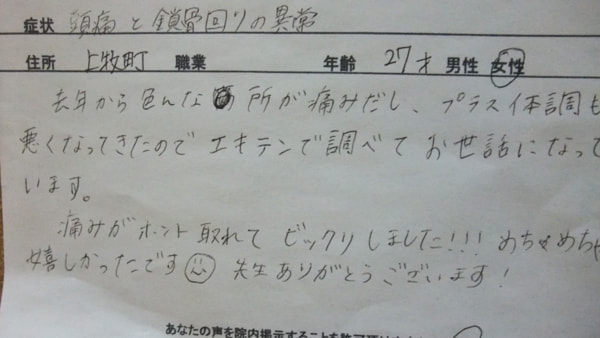 症状 頭痛と鎖骨回りの異常
住所 上牧町 職業 年齢 27才 男性 女性
去年から色んな所が痛みだし、プラス体調も
悪くなってきたのでエキテンで調べてお世話になって
います。
痛みがホント取れてビックリしました!!! めちゃめちゃ
嬉しかったです 先生ありがとうございます!
あなたの声を院内掲示することを